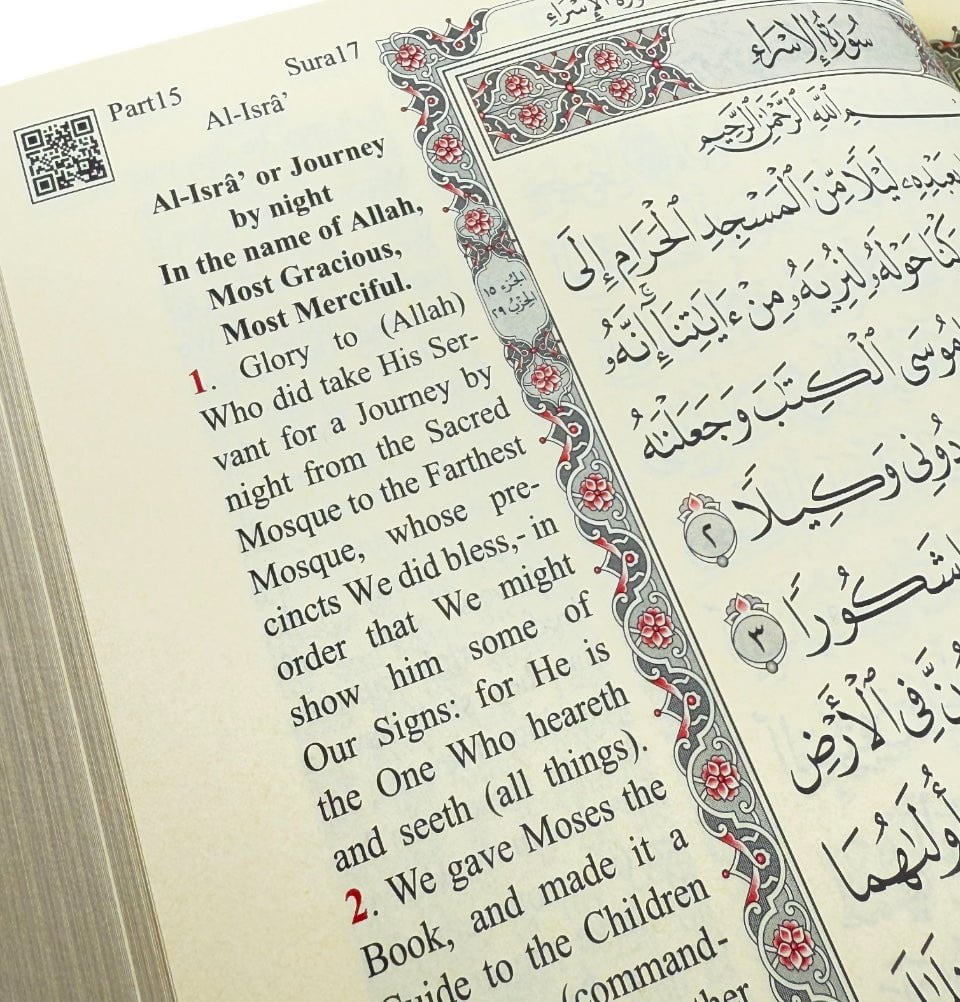 Part15
Sura17
Al-Isrâ’
Al-Isrâ’ or Journey
by night
In the name of Allah,
Most Gracious,
Most Merciful.
1. Glory to (Allah)
Who did take His Ser-
vant for a Journey by
night from the Sacred
Mosque to the Farthest
Mosque, whose pre-
cincts We did bless,- in
order that We might
show him some of
Our Signs: for He is
the One Who heareth
and seeth (all things).
2. We gave Moses the
Book, and made it a
Guide to the Children
(command-
الجزء ١٥
الحزب ٢٩
سورة الإسراء
سُورَةُ الإِسْرَاءِ
ٱللَّهِ ٱلرَّحْمَٰنِ ٱلرَّحِيمِ
بِعَبْدِهِۦ لَيْلًا مِّنَ ٱلْمَسْجِدِ ٱلْحَرَامِ إِلَى
حَوْلَهُۥ لِنُرِيَهُۥ مِنْ ءَايَٰتِنَآ إِنَّهُۥ
مُوسَى ٱلْكِتَٰبَ وَجَعَلْنَٰهُ
دُونِى وَكِيلًا ٢
شَكُورًا ٣
فِى ٱلْأَرْضِ
أُولَىٰهُمَا